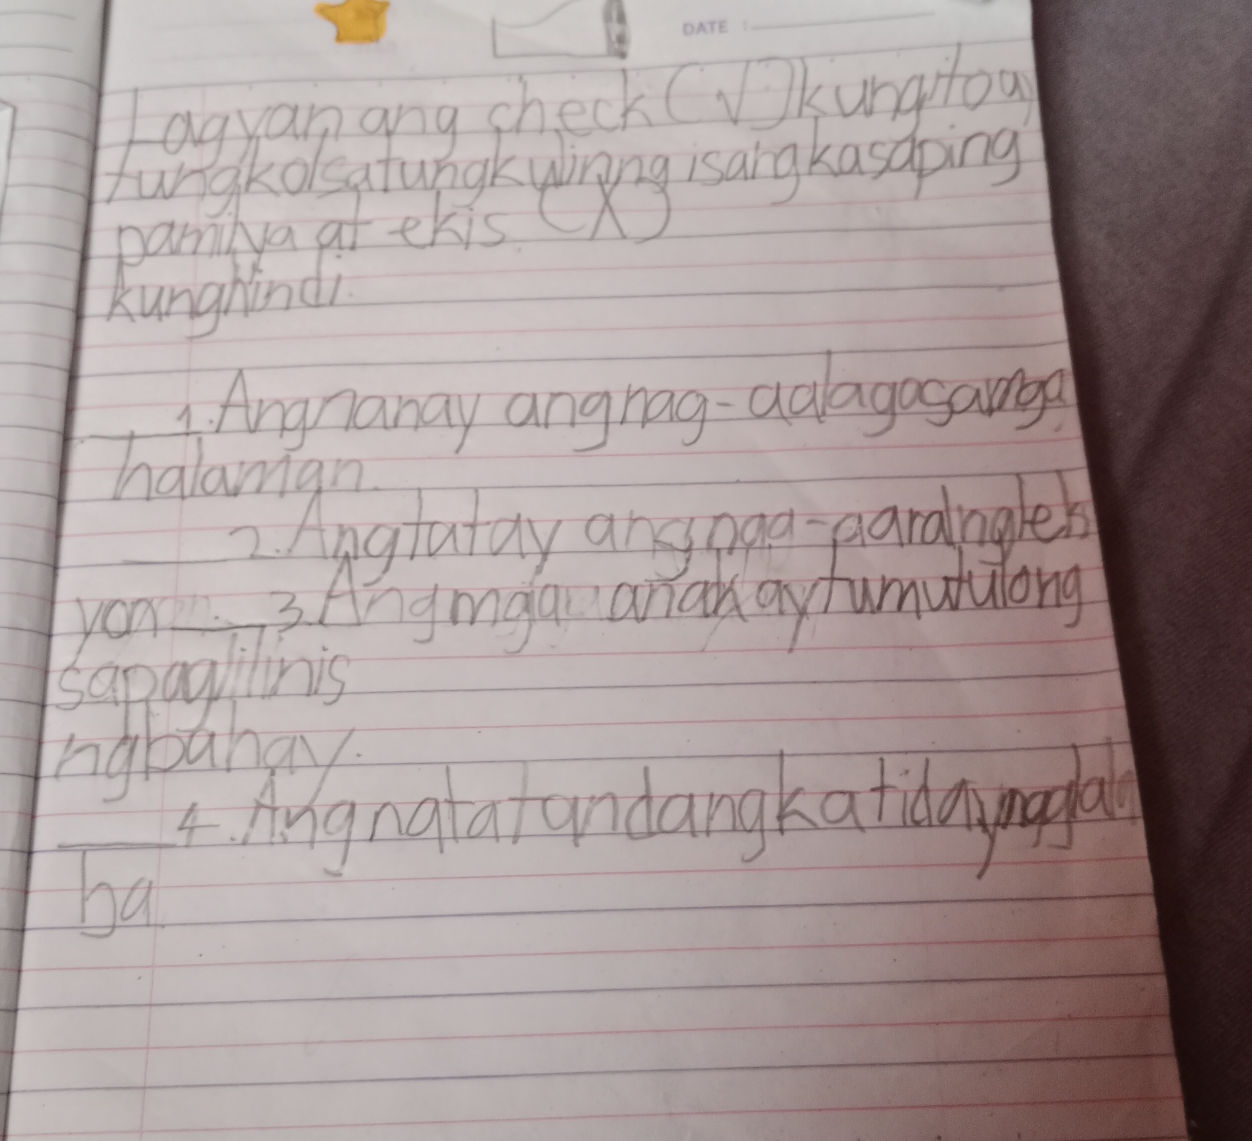 DATE :
Lagyan ang check (√) kung ito ay
tungkol sa tungkulin ng isang kasaping
pamilya at ekis (X)
kung hindi.
1. Ang nanay ang nag-aalaga sa mga
halaman.
2. Ang tatay ang nag-aaral ng lek
yon 3. Ang mga anak ay tumutulong
sa paglilinis
ng bahay.
4. Ang nakatatandang kapatid ay naglala
ba